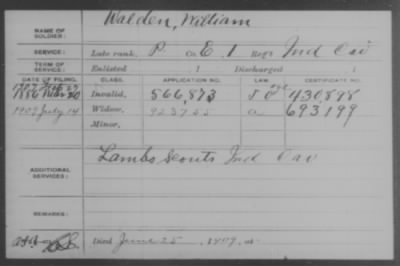 Walden, William
NAME OF SOLDIER:
SERVICE: Late rank, P. Co. E, 1 Reg't Ind Cav
TERM OF SERVICE: Enlisted , 1 Discharged , 1
DATE OF FILING. CLASS. APPLICATION NO. LAW. CERTIFICATE NO.
1886 Mar 20 Invalid, 566,873 430,898
1909 July 14 Widow, 923755 a 693,199
Minor,
ADDITIONAL SERVICES: Lambs Scouts Ind Cav
REMARKS:
Died June 25, 1909, at